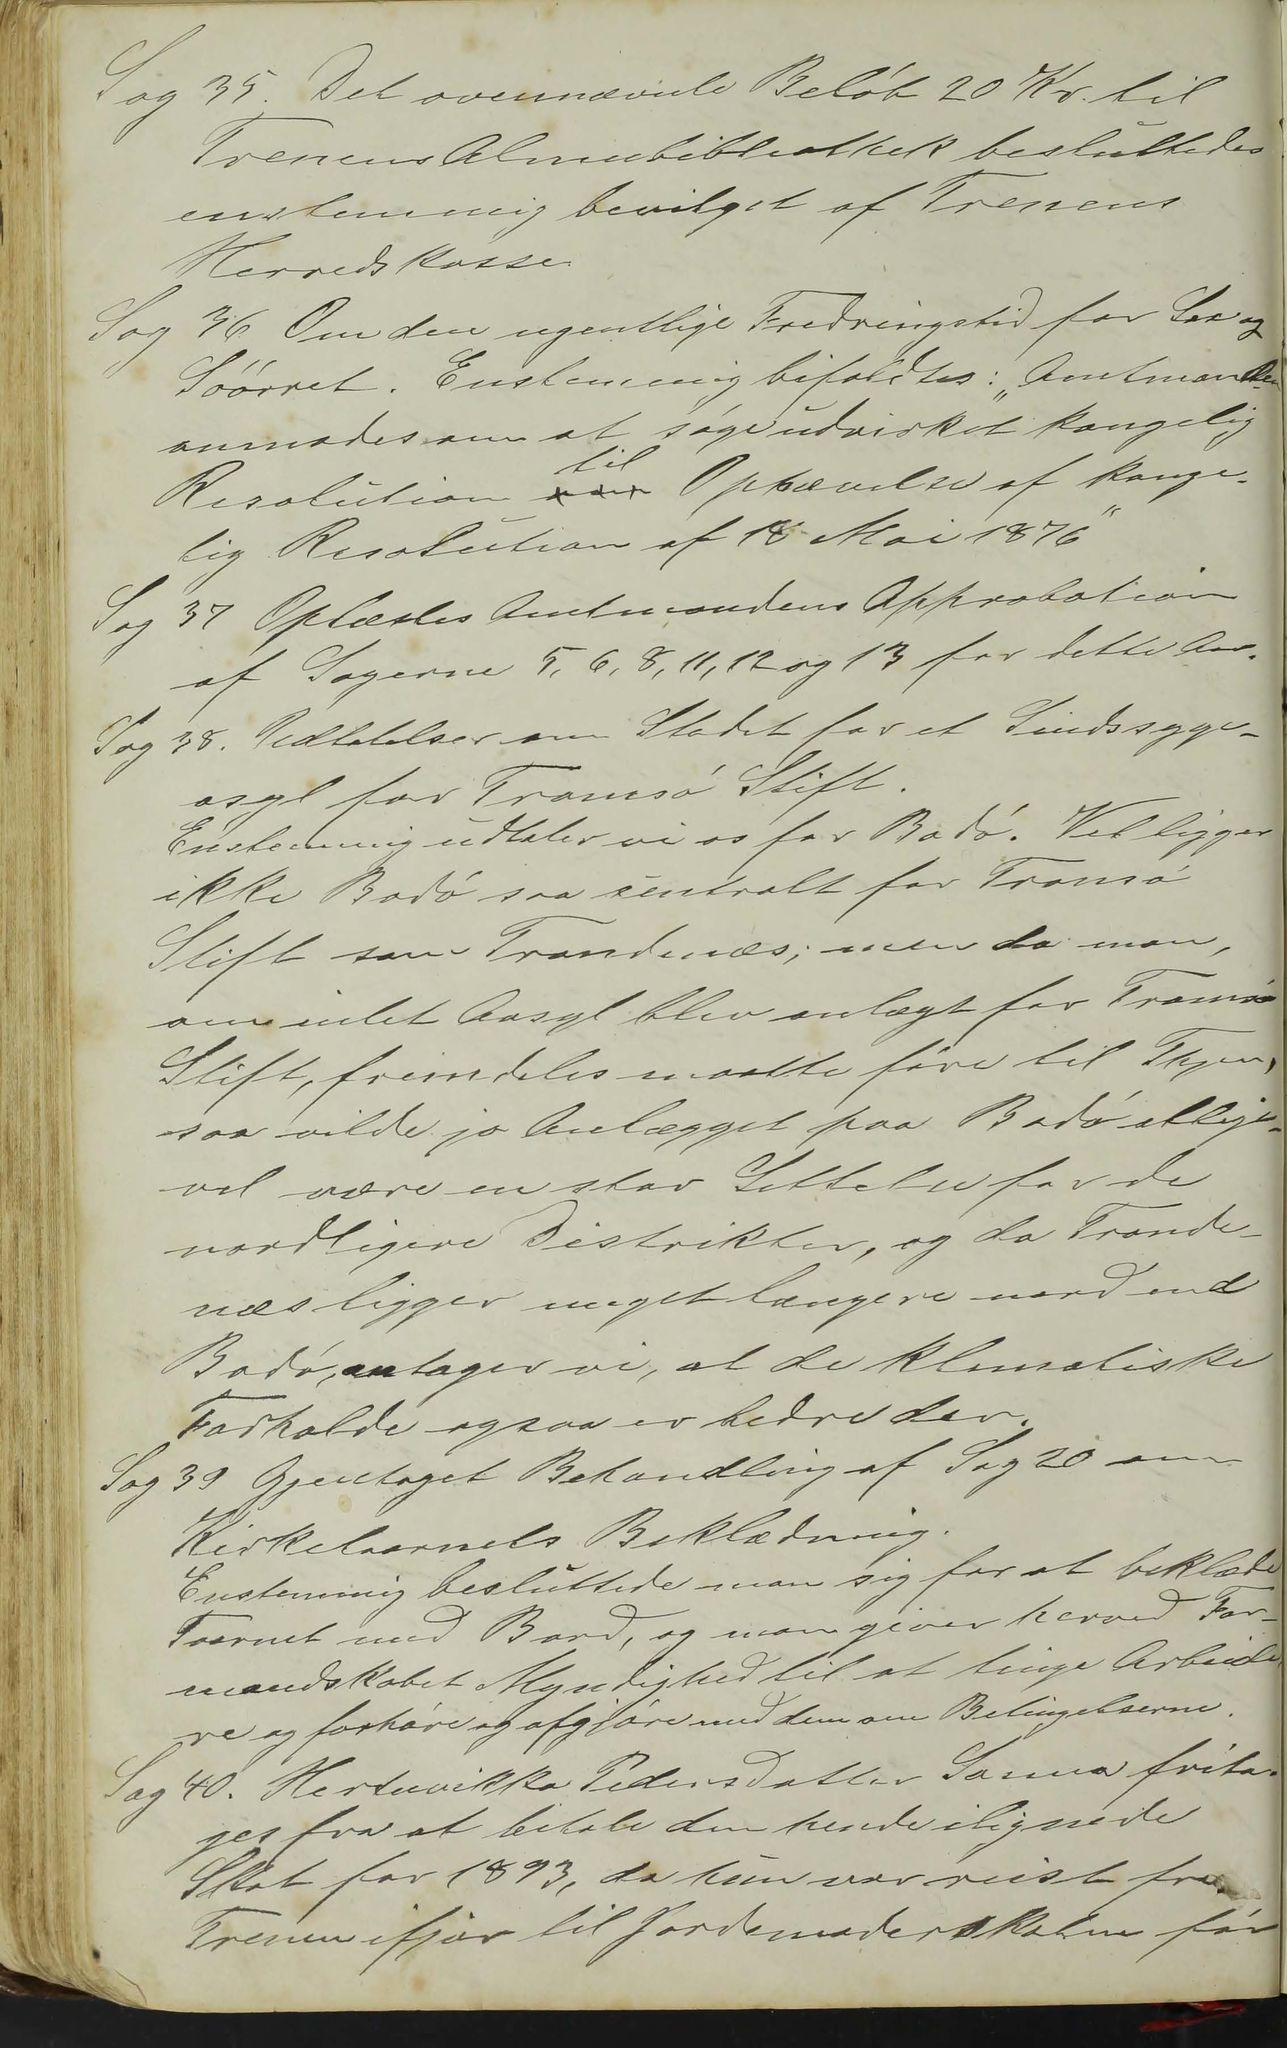 Sag 35. Det ovennævnte Beløb 20 Kr. til
Trenens Almuebibliothek besluttedes
enstemmig bevilget af Trenens
Herredskasse.
Sag 36 Om den ugentlige Fredningstid for Lax og
Søørret. Enstemmig bifaldtes: „Amtmanden
anmodes om at søge udvirket kongelig
Resolution til Ophævelse af konge-
lig Resolution af 18 Mai 1876“
Sag 37 Oplæstes Amtmandens Approbation
af Sagerne 5, 6, 8, 11, 12 og 13 for dette Aar.
Sag 38. Udtalelser om Stedet for et Sindssyge-
asyl for Tromsø Stift.
Enstemmig udtaler vi os for Bodø. Vel ligger
ikke Bodø saa sentralt for Tromsø
Stift som Trondenæs; men da man,
om intet Aasyl blev anlagt for Tromsø
Stift, fremdeles maatte føre til Thjem,
saa vilde jo Anlægget paa Bodø allige-
vel være en stor Lettelse for de
nordligere Distrikter, og da Tronde-
næs ligger meget længere nord end
Bodø, antager vi, at de klimatiske
Forholde ogsaa er bedre der.
Sag 39 Gjentaget Behandling af Sag 20 om
Kirketaarnets Beklædning.
Enstemmig besluttede man sig for at beklæde
Taarnet med Bord, og man giver herved For-
mandskabet Myndighed til at tinge Arbeide
re og forhøre og afgjøre med dem om Betingelserne.
Sag 40. Hertuvikka Pedersdatter Sanna frita-
ges fra at betale den hende ilignede
Skat for 1893, da hun var reist fra
Trenen ifjor til Jordemoderskolen før